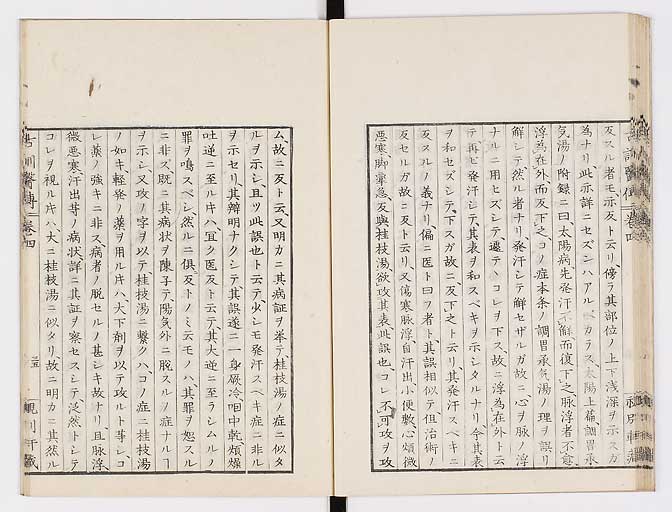 反スル者モ示反ト云リ、傍ラ其部位ノ上下浅深ヲ示スガ
為ナリ、此示詳ニセズンハアルベカラス、太陽上篇、調胃承
気湯ノ附録ニ曰太陽病先発汗不解、而復下之、脉浮者不愈
浮為在外而反下之、コノ症本条ノ調胃承気湯ノ理ヲ誤リ
解シテ然ル者ナリ、発汗シテ解セザルガ故ニ心ヲ脉ノ浮
ナルニ用セズシテ遽テコレヲ下ス、故ニ浮為在外ト云
テ再ビ発汗シテ、其表ヲ和スベキヲ示シタルナリ、今其表
ヲ和セズシテ、下スガ故ニ反下之ト云リ、其発汗スベキニ
反スルノ義ナリ、偏ニ医ト曰フ者ト、其誤相似テ、但治術ノ
反セルガ故ニ反ト云リ、又傷寒脉浮自汗出小便數心煩微
悪寒、脚攣急、反與桂枝湯欲攻其表此誤也、コレ不可攻ヲ攻
ム、故ニ反ト云、又明カニ其病証ヲ挙テ、桂枝湯ノ症ニ似タ
ルヲ示シ、且ツ此誤也ト云テ、少シモ発汗スベキ症ニ非ル
ヲ示セリ、其辨明ナクシテ、其誤遂ニ一身厥冷咽中乾、煩燥
吐逆ニ至ル片ハ、宜ク医反ト云テ、其大逆ニ至ラシムルノ
罪ヲ鳴スベシ、然ルニ倶反トノミ云モノハ、其罪ヲ恕スル
ニ非ス、既ニ其病状ヲ陳子テ、陽気外ニ脱スルノ症ナルヿ
ヲ示シ、又攻ノ字ヲ以テ、桂枝湯ニ繋クハ、コノ症ニ桂枝湯
ノ如キ、軽発ノ薬ヲ用ル片ハ、大下剤ヲ以テ攻ルト等シ、コ
レ薬ノ強キニ非ス、病者ノ脱セルノ甚シキ故ナリ、且脉浮
微悪寒、汗出等ノ病状、詳ニ其証ヲ察セスシテ、泛然トシテ
コレヲ視ル片ハ、大ニ桂枝湯ニ似タリ、故ニ明カニ其然ル